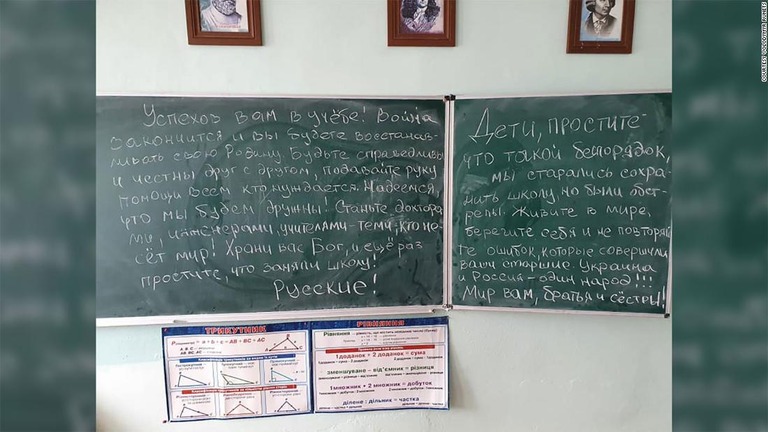 Успехов вам в учёбе! Война
закончится и вы будете восстанав-
ливать свою Родину. Будьте справедливы
и честны друг с другом, подавайте руку
помощи всем кто нуждается. Надеемся,
что мы будем дружны! Станьте доктора-
ми, инженерами, учителями - теми, кто не-
сёт мир! Храни вас Бог, и ещё раз
простите, что заняли школу!
Русские!
Дети, простите
что такой беспорядок,
мы старались сохра-
нить школу но были обст-
релы. Живите в мире,
берегите себя и не повторяй-
те ошибок, которые совершили
ваши старшие. Украина
и Россия - один народ!!!
Мир вам, братья и сёстры!
ТРИКУТНИК
РІВНЯННЯ
1 доданок + 2 доданок = сума
зменшуване - від'ємник = різниця
1множник • 2 множник = добуток
ділене : дільник = частка
COURTESY VOLODYMYR RUNETS